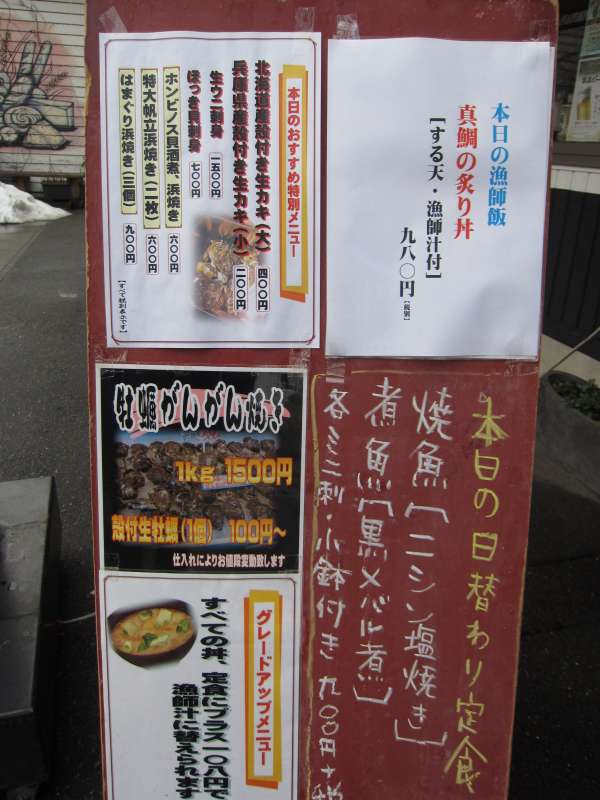 本日のおすすめ特別メニュー
北海道産殻付き生カキ(大) 四〇〇円
兵庫県産殻付き生カキ(小) 二〇〇円
生ウニ刺身 一五〇〇円
ほっき貝刺身 七〇〇円
ホンビノス貝酒煮、浜焼き 六〇〇円
特大帆立浜焼き(二枚) 六〇〇円
はまぐり浜焼き(三個) 九〇〇円
【すべて税別表示です】
本日の漁師飯
真鯛の炙り丼
[する天・漁師汁付]
九八〇円[税別]
牡蠣がんがん焼き
1kg 1500円
殻付生牡蠣(1個) 100円~
仕入れによりお値段変動致します
本日の日替わり定食
焼魚[ニシン塩焼き]
煮魚[黒メバル煮]
各ミニ刺・小鉢付き 九〇〇円+税
グレードアップメニュー
すべての丼、定食にプラス一〇八円で
漁師汁に替えられます